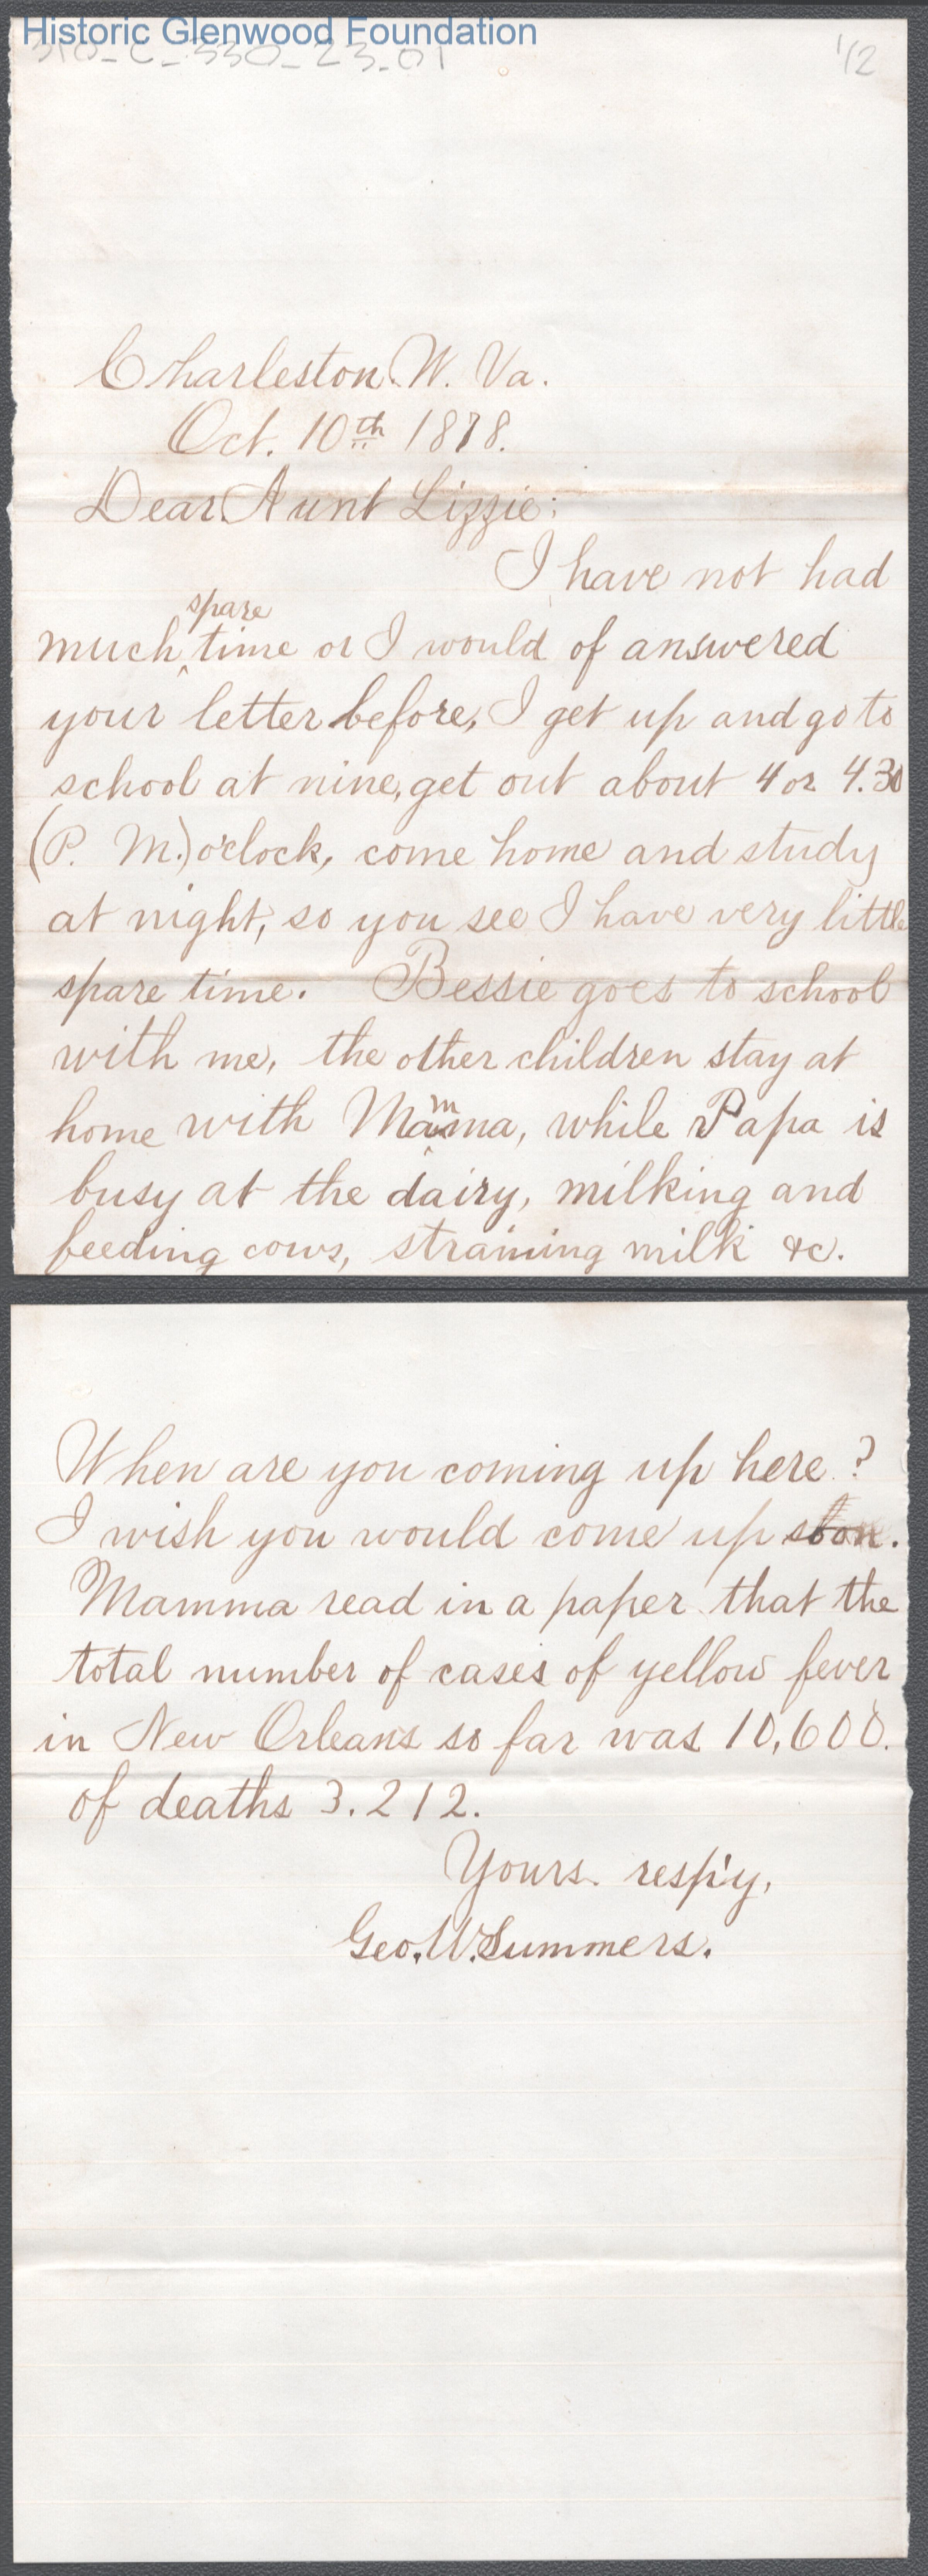 Historic Glenwood Foundation
310_C_530_23_01
1/2
Charleston. W. Va.
Oct. 10th 1878.
Dear Aunt Lizzie:
I have not had
spare
much ^ time or I would of answered
your letter before, I get up and go to
school at nine, get out about 4 or 4.30
(P. M.) o'clock, come home and study
at night, so you see I have very little
spare time. Bessie goes to school
with me, the other children stay at
home with Mamma, while Papa is
busy at the dairy, milking and
feeding cows, straining milk &c.
When are you coming up here?
I wish you would come up soon.
Mamma read in a paper that the
total number of cases of yellow fever
in New Orleans so far was 10,600.
of deaths 3.212.
Yours. resp'y,
Geo. W. Summers.